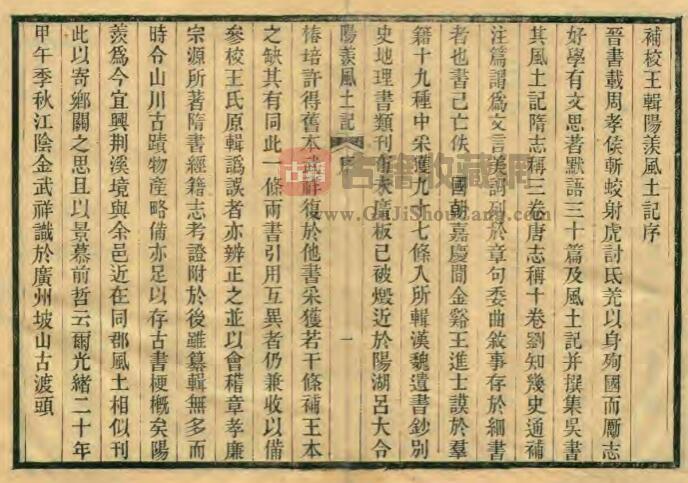 補校王輯陽羨風土記序
晉書載周孝侯斬蛟射虎討氐羌以身殉國而厲志
好學有文思著默語三十篇及風土記并撰集吳書
其風土記隋志稱三卷唐志稱十卷劉知幾史通補
注篇謂爲文言美詞列於章句委曲敘事存於細書
者也書已亡佚 國朝嘉慶間金谿王進士謨於羣
籍十九種中采獲九十七條入所輯漢魏遺書鈔別
史地理書類刊布未廣板已被燬近於陽湖呂大令
陽羨風土記 序 一
椿培許得舊本武祥復於他書采獲若干條補王本
之缺其有同此一條兩書引用互異者仍兼收以備
參校王氏原輯譌誤者亦辨正之並以會稽章孝廉
宗源所著隋書經籍志考證附於後雖纂輯無多而
時令山川古蹟物產略備亦足以存古書梗概矣陽
羨爲今宜興荆溪境與余邑近在同郡風土相似刊
此以寄鄉關之思且以景慕前哲云爾光緒二十年
甲午季秋江陰金武祥識於廣州坡山古渡頭
古籍收藏网
www.GuJiShouCang.com